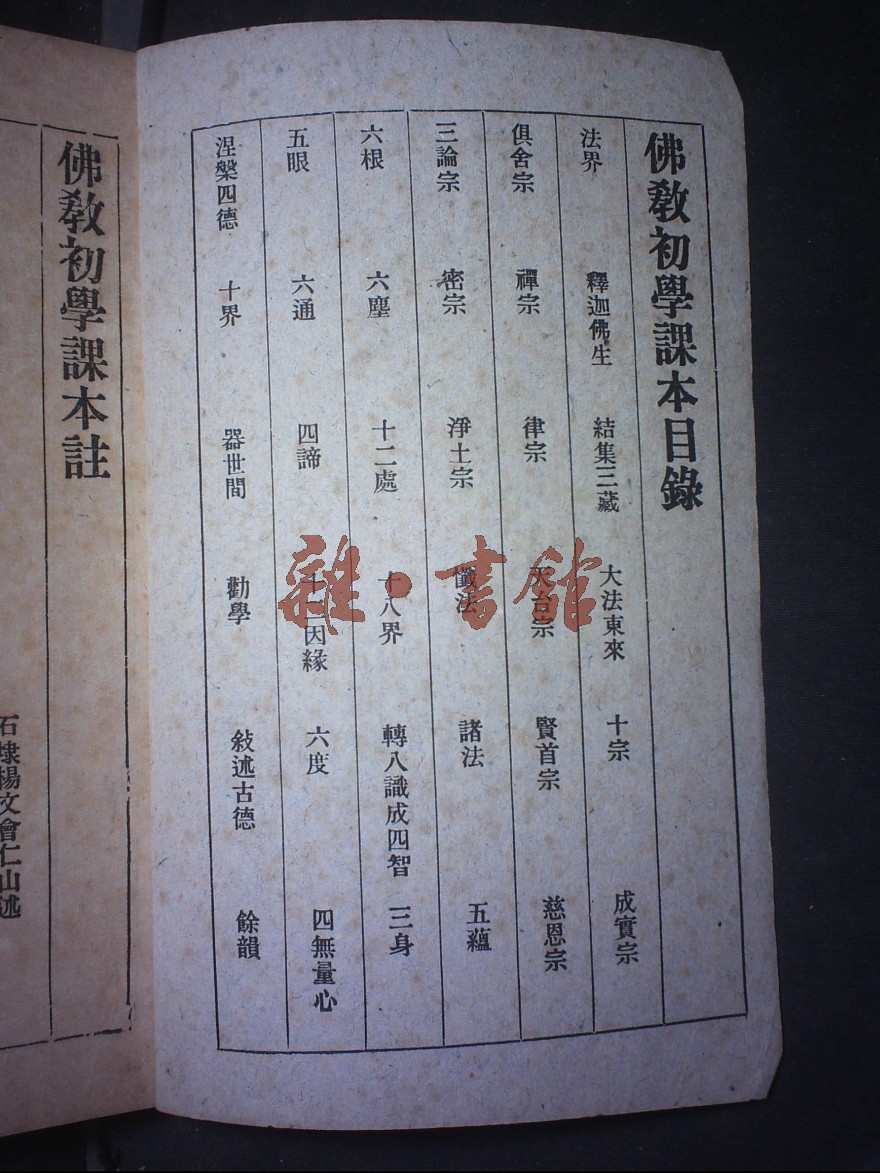 佛教初學課本目錄
法界　釋迦佛生　結集三藏　大法東來　十宗　成實宗
俱舍宗　禪宗　律宗　天台宗　賢首宗　慈恩宗
三論宗　密宗　淨土宗　懺法　諸法　五蘊
六根　六塵　十二處　十八界　轉八識成四智　三身
五眼　六通　四諦　十二因緣　六度　四無量心
涅槃四德　十界　器世間　勸學　敍述古德　餘韻
佛教初學課本註
石埭楊文會仁山述
雜·書館